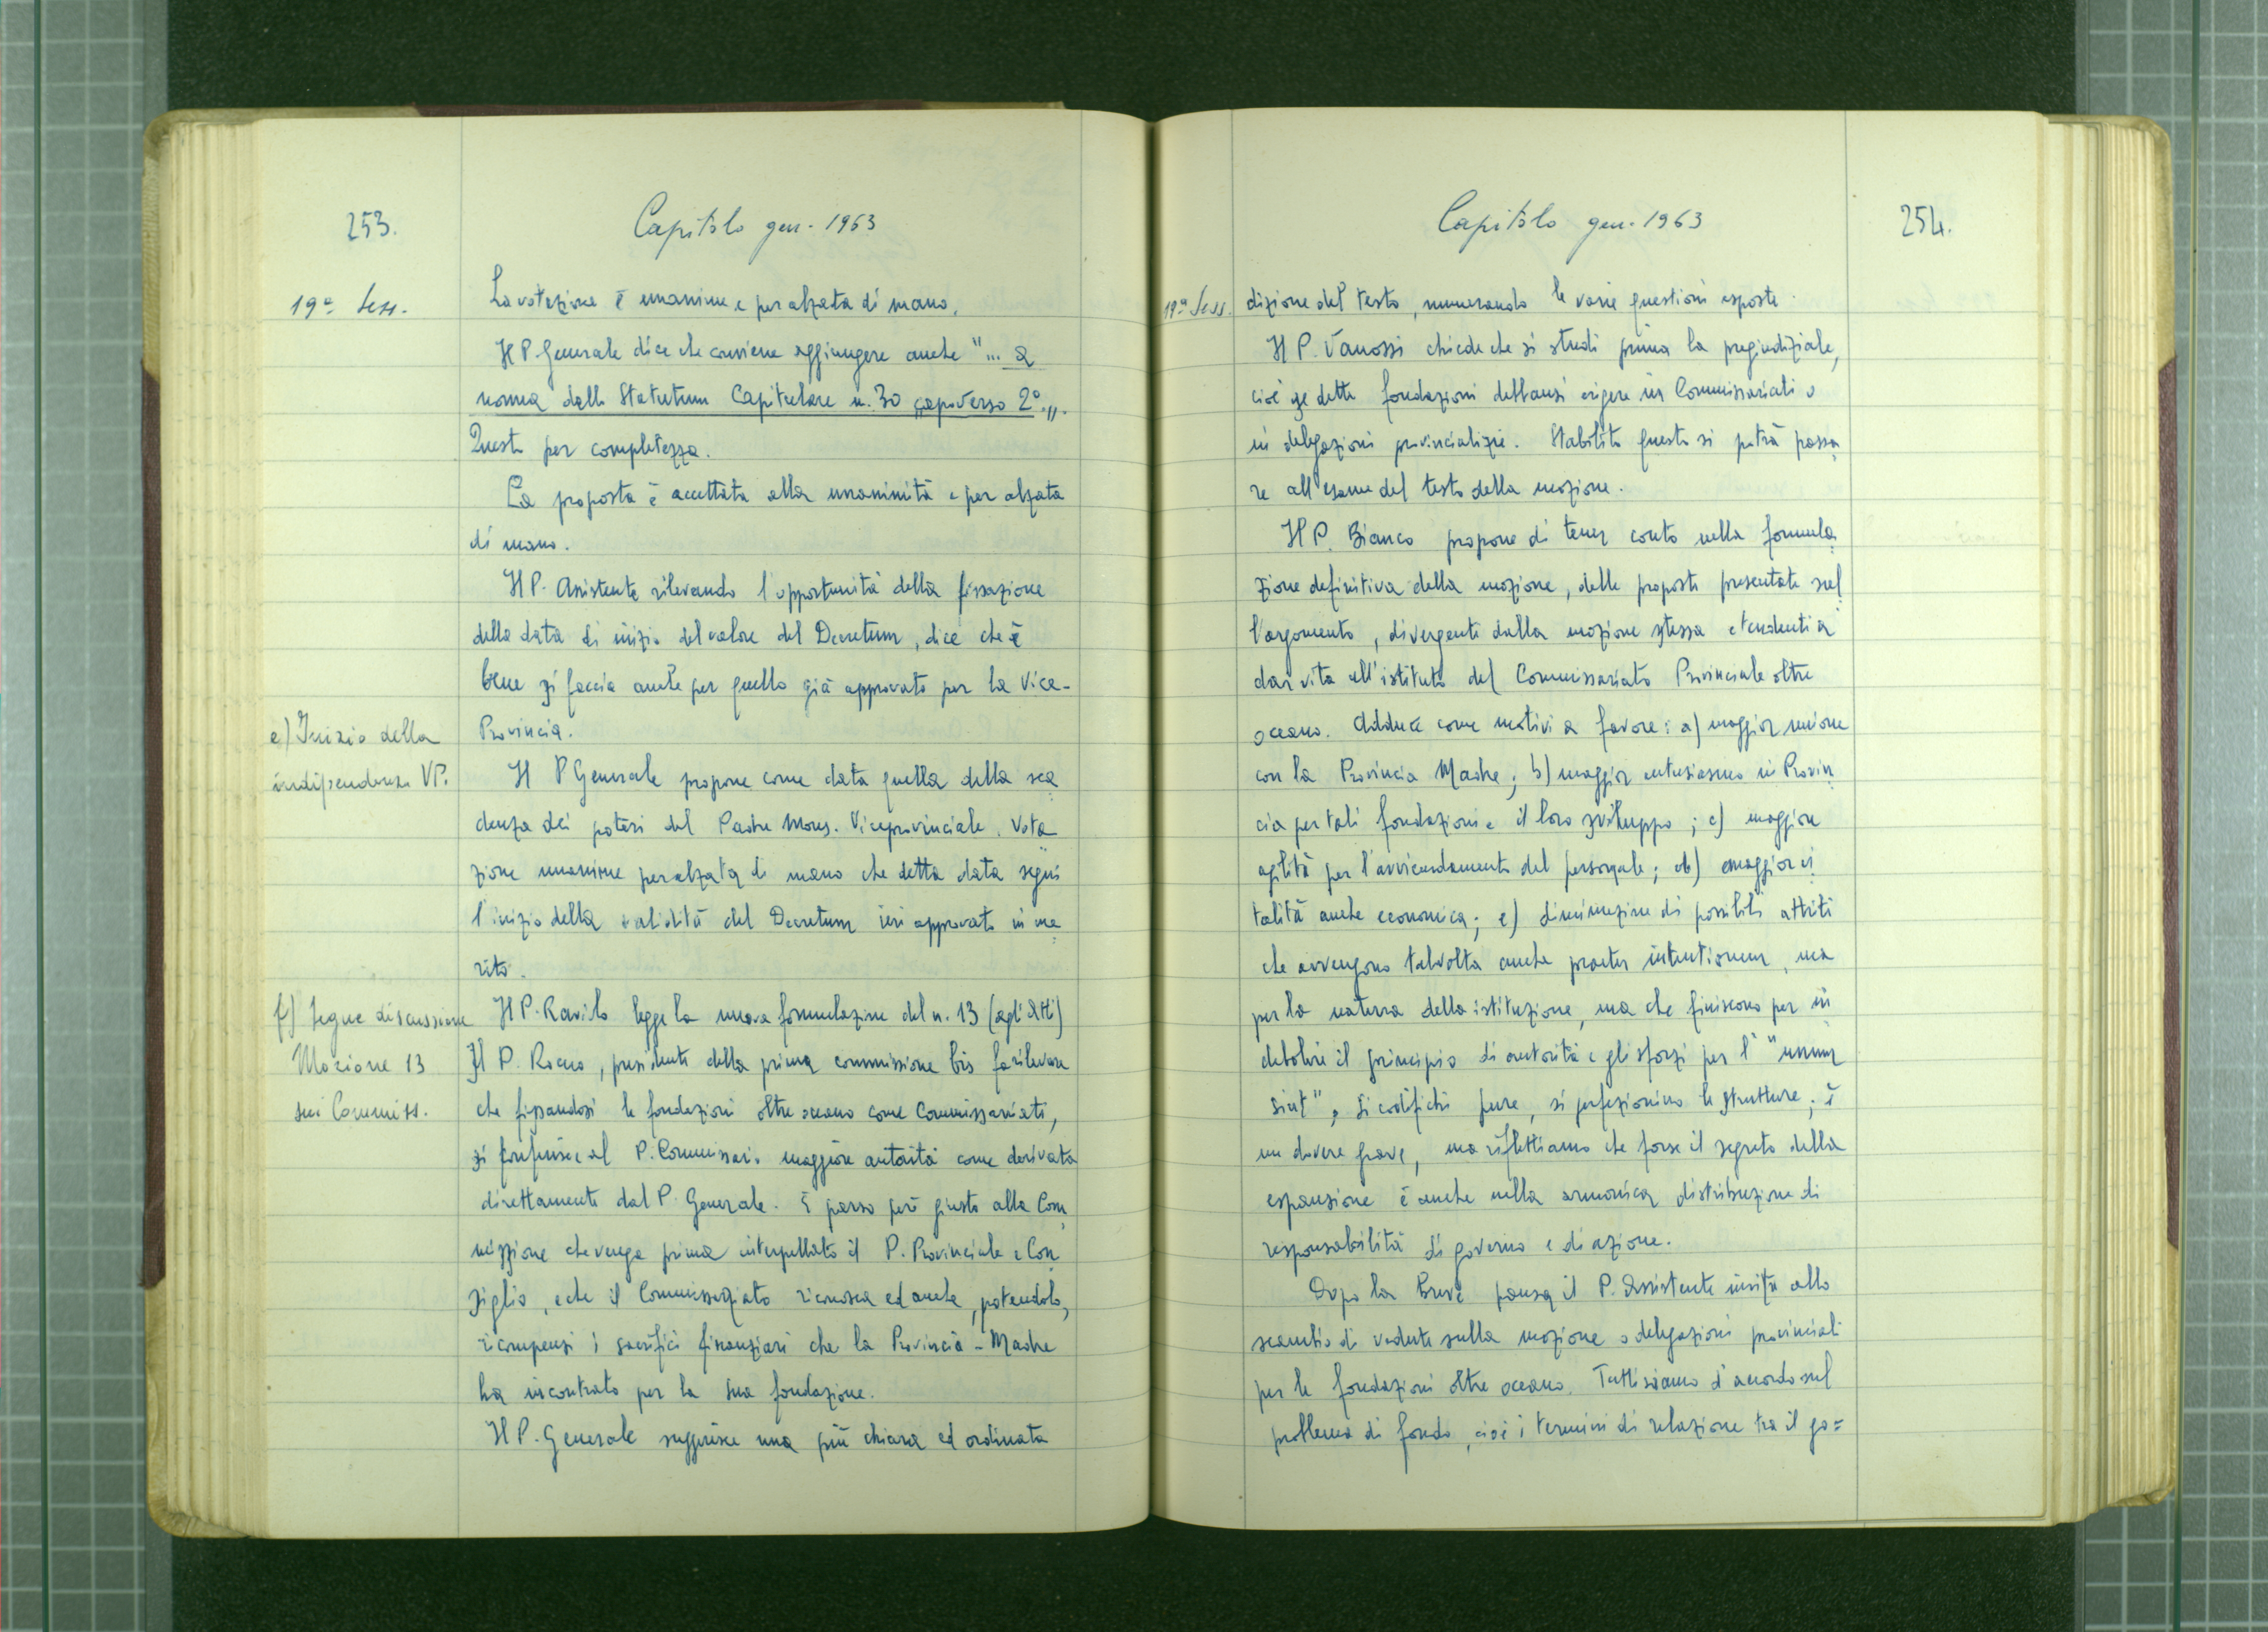 253.
Capitolo gen. 1963
19ª Sess.
La votazione è unanime e per alzata di mano.
Il P. Generale dice che conviene aggiungere anche "... a
norma dello Statutum Capitulare n. 30 capoverso 2°.„.
Questo per completezza.
La proposta è accettata alla unanimità e per alzata
di mano.
Il P. Assistente rilevando l'opportunità della fissazione
della data di inizio del valore del Decretum, dice che è
bene si faccia anche per quello già approvato per la Vice-
Provincia.
e) Inizio della
indipendenza VP.
Il P Generale propone come data quella della sca
denza dei poteri del Padre Mons. Viceprovinciale. Vota
zione unanime per alzata di mano che detta data segni
l'inizio della validità del Decretum ieri approvato in me
rito.
f) Segue discussione
Mozione 13
sui Commiss.
Il P. Ravilo legge la nuova formulazione del n. 13 (agli Atti)
Il P. Rocco, presidente della prima commissione bis fa rilevare
che fissandosi le fondazioni oltre oceano come Commissariati,
si conferisce al P. Commissario maggiore autorità come derivata
direttamente dal P. Generale. È parso però giusto alla Com
missione che venga prima interpellato il P. Provinciale e Con
siglio, e che il Commissariato riconosca ed anche, potendolo,
ricompensi i sacrifici finanziari che la Provincia-Madre
ha incontrato per la sua fondazione.
Il P. Generale suggerisce una più chiara ed ordinata
Capitolo gen. 1963
254.
19ª Sess.
dizione del testo, numerando le varie questioni esposte.
Il P. Vanossi chiede che si studi prima la pregiudiziale,
cioè se dette fondazioni debbansi erigere in Commissariati o
in delegazioni provincializie. Stabilito questo si potrà passa
re all'esame del testo della mozione.
Il P. Bianco propone di tener conto nella formula
zione definitiva della mozione, delle proposte presentate sul
l'argomento, divergenti dalla mozione stessa e tendenti a
dar vita all'istituto del Commissariato Provinciale oltre
oceano. Adduce come motivi a favore: a) maggior unione
con la Provincia Madre; b) maggior entusiasmo in Provin
cia per tali fondazioni e il loro sviluppo; c) maggiore
agilità per l'avvicendamento del personale; d) maggior vi
talità anche economica; e) diminuzione di possibili attriti
che avvengono talvolta anche praeter intentionem, ma
per la natura della istituzione, ma che finiscono per in
debolire il principio di autorità e gli sforzi per l'"unum
sint". Si codifichi pure, si perfezionino le strutture; è
un dovere grave, ma riflettiamo che forse il segreto della
espansione è anche nella armonica distribuzione di
responsabilità di governo e di azione.
Dopo la breve pausa il P. Assistente invita allo
scambio di vedute sulla mozione o delegazioni provinciali
per le fondazioni oltre oceano. Tutti siamo d'accordo sul
problema di fondo, cioè i termini di relazione tra il go=